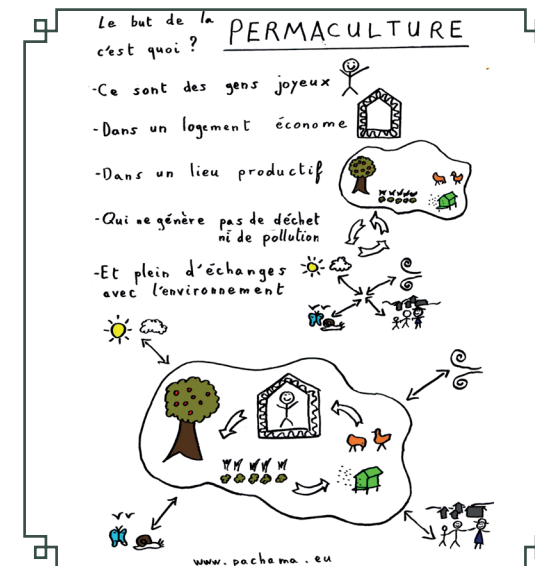 Le but de la
c'est quoi ?
PERMACULTURE
-Ce sont des gens joyeux
-Dans un logement économe
-Dans un lieu productif
-Qui ne génère pas de déchet
ni de pollution
-Et plein d'échanges
avec l'environnement
www.pachama.eu